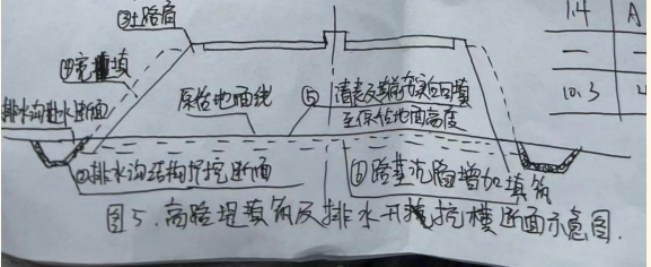 ③土路肩
1.4 A
④宽填
一 一
原始地面线 ⑤ 清表及回填
10.3
排水沟水断面
至原始地面高度
排水沟结构开挖断面
⑥路基沉陷增加填筑
图5.高路堤填筑及排水开挖横断面示意图.